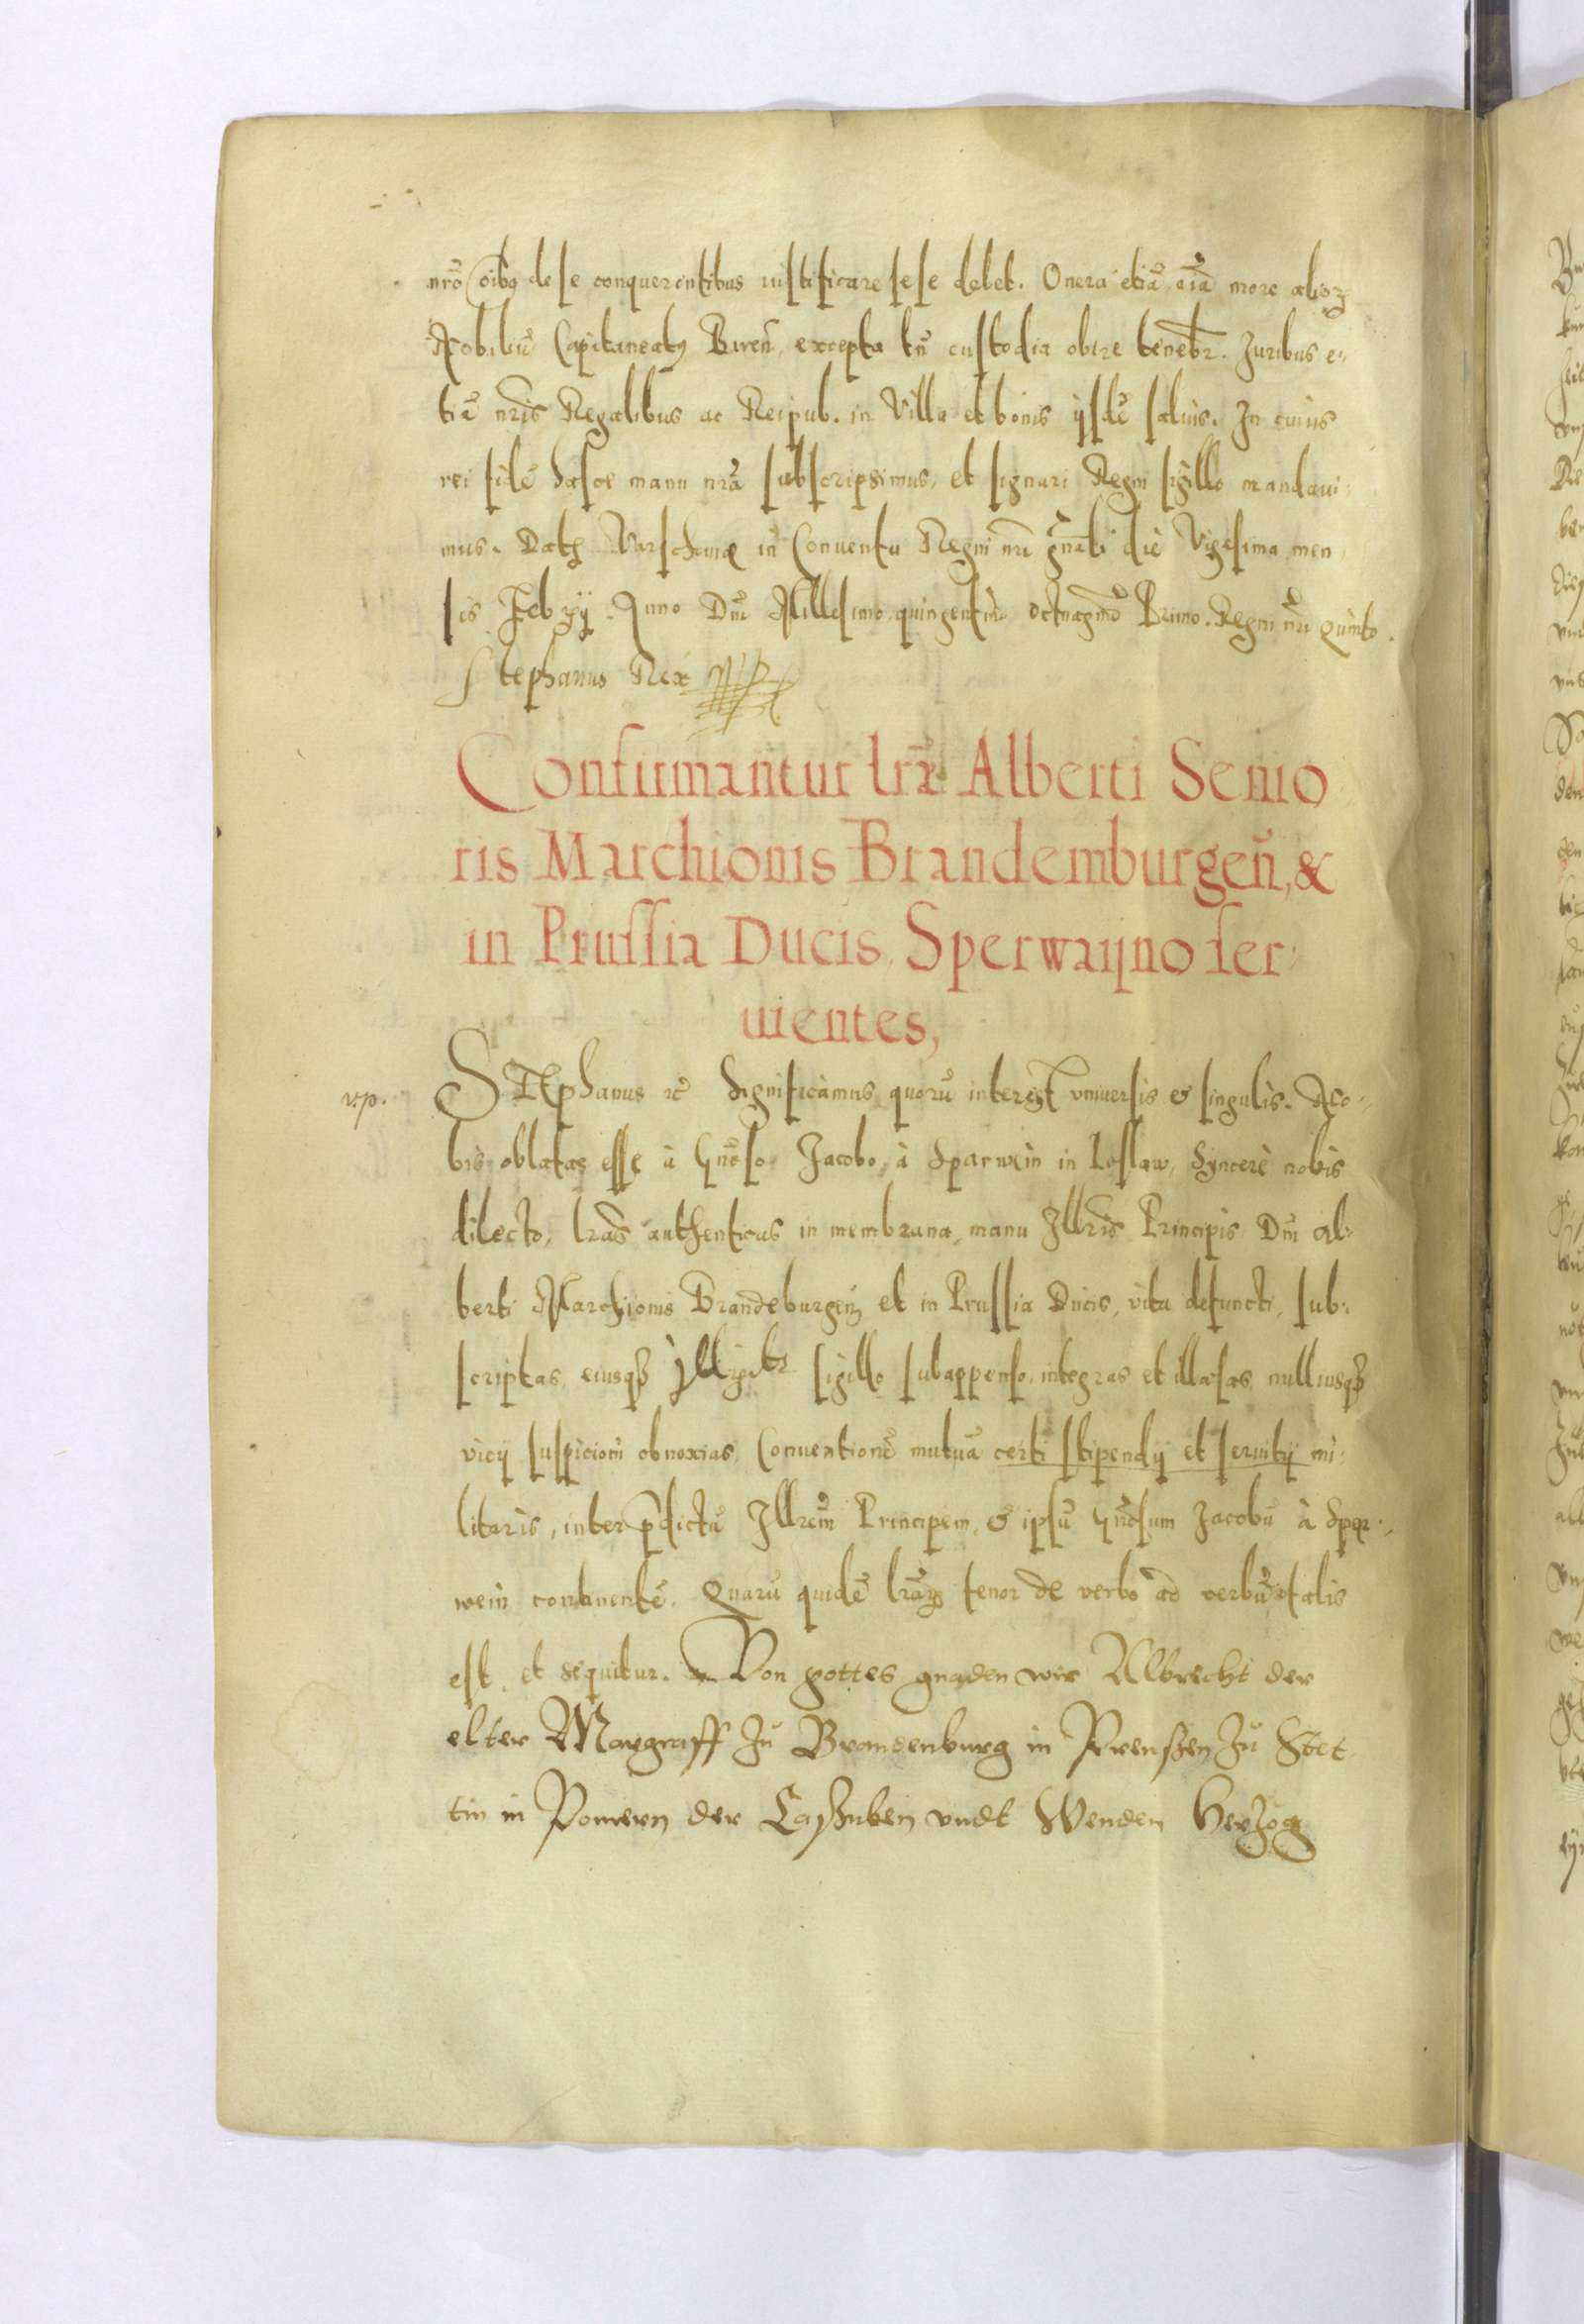 nro oibq de se conquerentibus iustificare sese debet. Onera etiā aīa more alioꝝ
Nobiliū Capitaneatq Biren̄ excepta tn̄ custodia obire tenebr. Juribus e-
tiā nris Regalibus ac Reipub. in Villa et bonis ijsdē saluis. In cuius
rei fidē hasce manu nrā subscripsimus, et signari Regni sigillo mandaui-
mus. Datꝫ Varschauiæ in Conuentu Regni nri gn̄ali die Vigesima men
sis Febrij. Anno Dnī Millesimo quingentmo octuagmo Primo. Regni nri Quinto.
Stephanus Rex
Confirmantur lræ Alberti Senio
ris Marchionis Brandemburgen̄, &
in Prussia Ducis, Sperwaijno ser-
uientes,
v.p. STEphanus rc Significamus quorū interest vniuersis & singulis. No-
bis oblatas esse à Gnoso Jacobo, à Sparwein in Loslaw, syncerè nobis
dilecto, lras authenticas in membrana, manu Illris Principis Dnī Al-
berti Marchionis Brandeburgen̄ et in Prussia Ducis, vita defuncti, sub-
scriptas, eiusqꝫ sigillo subappenso, integras et illæsas nulliusqꝫ
vicij suspicioni obnoxias, Conuentionē mutuā certi stipendij et seruitij mi-
litaris, inter pdictū Illrem Principem, & ipsū Gnosum Jacobū à Spar-
wein continentē. Quarū quidē lraꝝ tenor de verbo ad verbū talis
est, et sequitur. Von gottes gnaden wir Albrecht der
elter Marggraff zu Brandenburg in Preussen zu Stet
tin in Pomern der Cassuben vndt Wenden Herzog